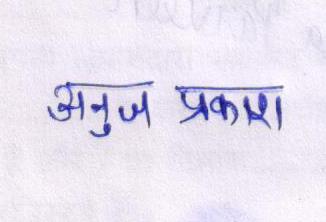 अनुज प्रकाश